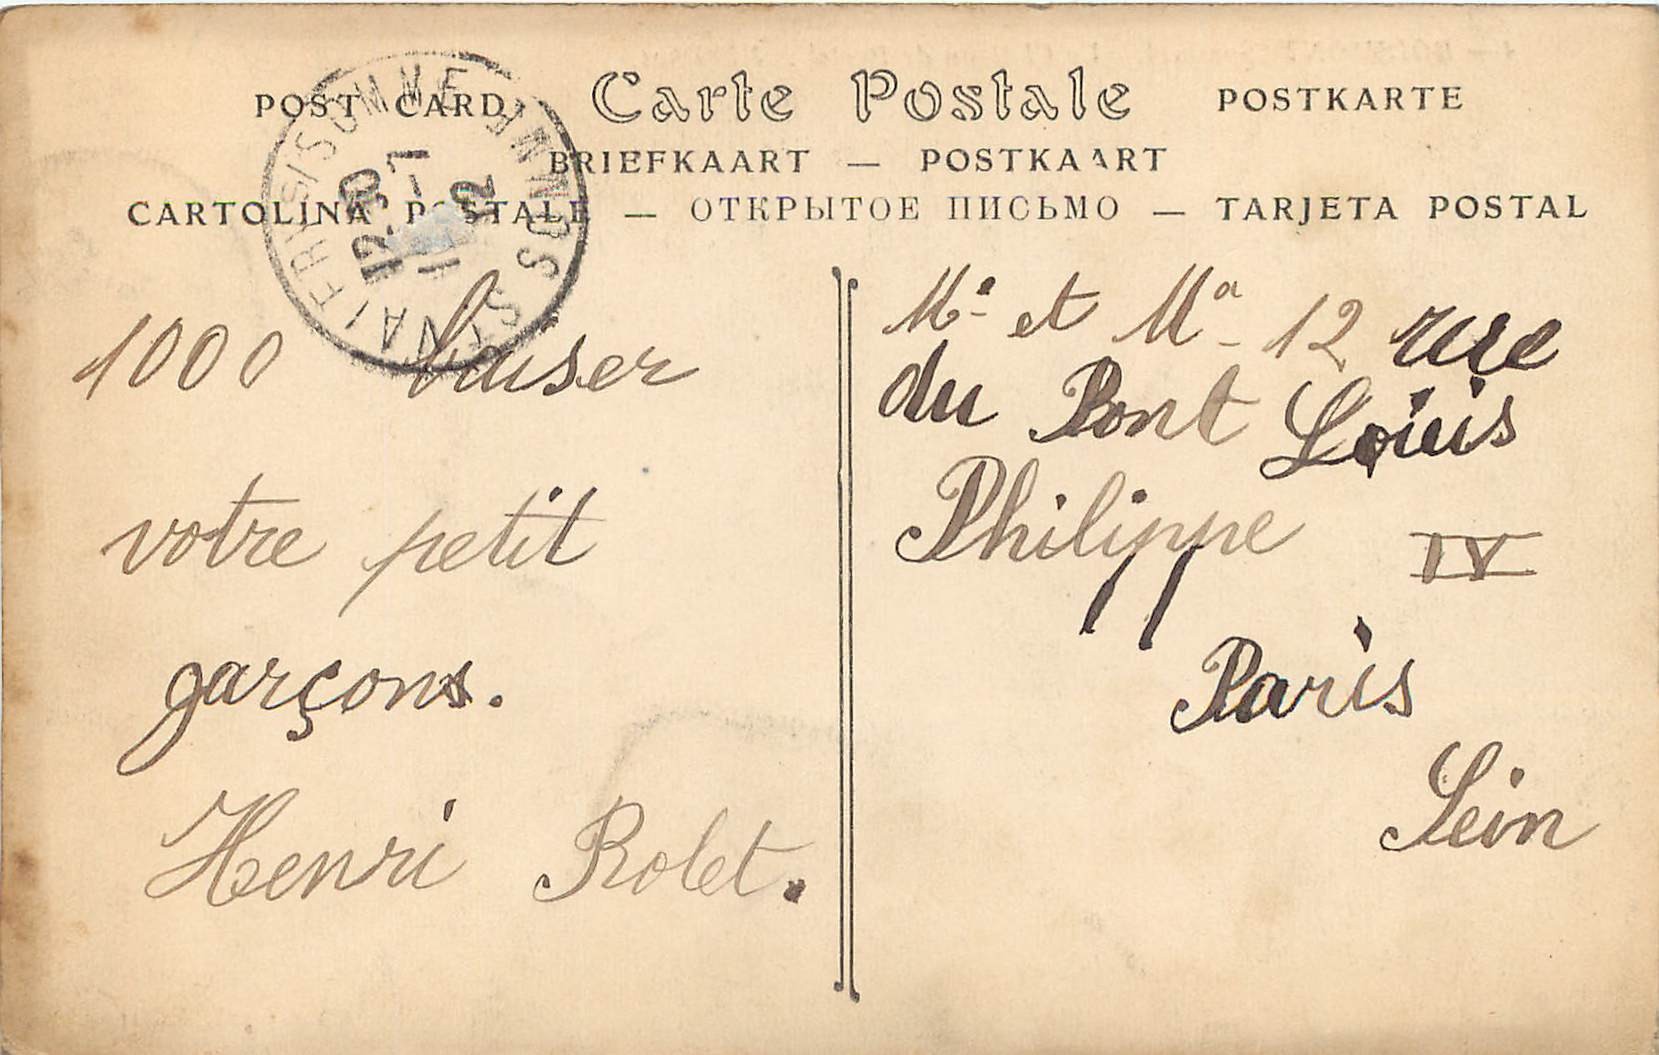 POST CARD Carte Postale POSTKARTE
BRIEFKAART — POSTKAART
CARTOLINA POSTALE — ОТКРЫТОЕ ПИСЬМО — TARJETA POSTAL
12-30
1000 baiser
votre petit
garçons.
Henri Rolet.
Mr et Ma 12 rue
du Pont Louis
Philippe IV
Paris
Sein